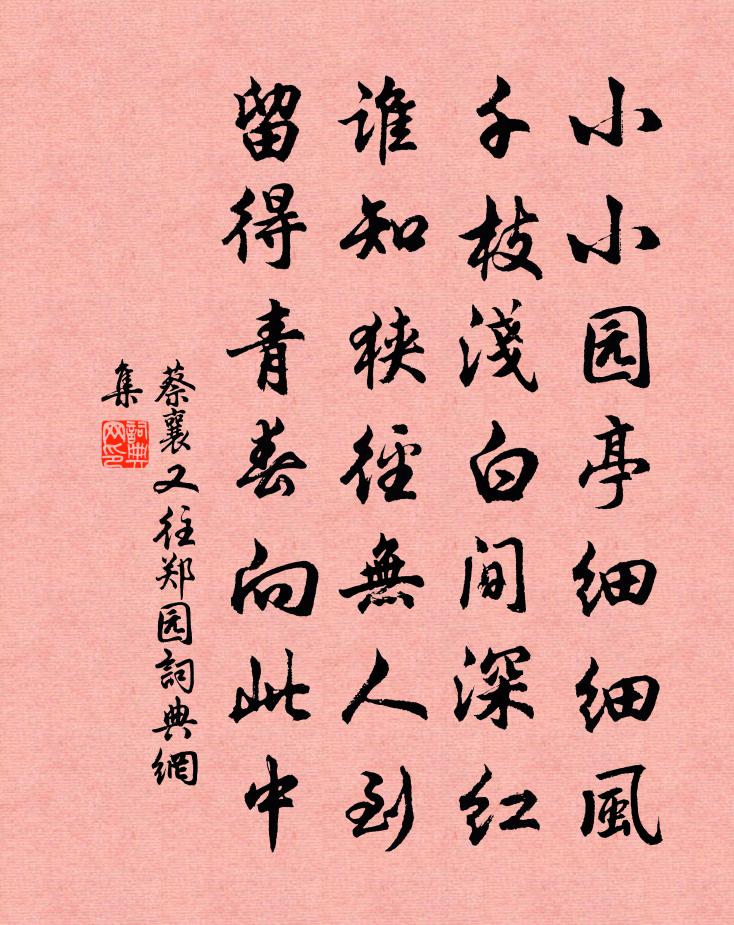 小小园亭细细風
千枝淺白间深红
谁知狭徑無人到
留得青春向此中
蔡襄又往郑园詞典網
集
詞典網印